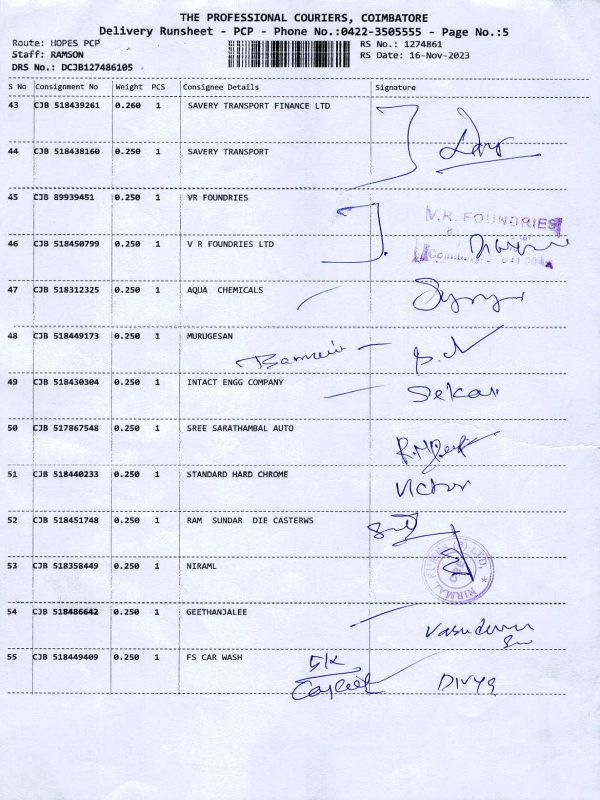 THE PROFESSIONAL COURIERS, COIMBATORE
Delivery Runsheet - PCP - Phone No.:0422-3505555 - Page No.:5
Route: HOPES PCP
RS No.: 1274861
Staff: RAMSON
RS Date: 16-Nov-2023
DRS No.: DCJB127486105
S No Consignment No Weight PCS Consignee Details Signature
43 CJB 518439261 0.260 1 SAVERY TRANSPORT FINANCE LTD
44 CJB 518438160 0.250 1 SAVERY TRANSPORT
45 CJB 89939451 0.250 1 VR FOUNDRIES
V.R. FOUNDRIES
46 CJB 518450799 0.250 1 V R FOUNDRIES LTD
47 CJB 518312325 0.250 1 AQUA CHEMICALS
48 CJB 518449173 0.250 1 MURUGESAN
49 CJB 518430304 0.250 1 INTACT ENGG COMPANY
Sekar
50 CJB 517867548 0.250 1 SREE SARATHAMBAL AUTO
51 CJB 518440233 0.250 1 STANDARD HARD CHROME
Victor
52 CJB 518451748 0.250 1 RAM SUNDAR DIE CASTERWS
53 CJB 518358449 0.250 1 NIRAML
54 CJB 518486642 0.250 1 GEETHANJALEE
55 CJB 518449409 0.250 1 FS CAR WASH
Divya